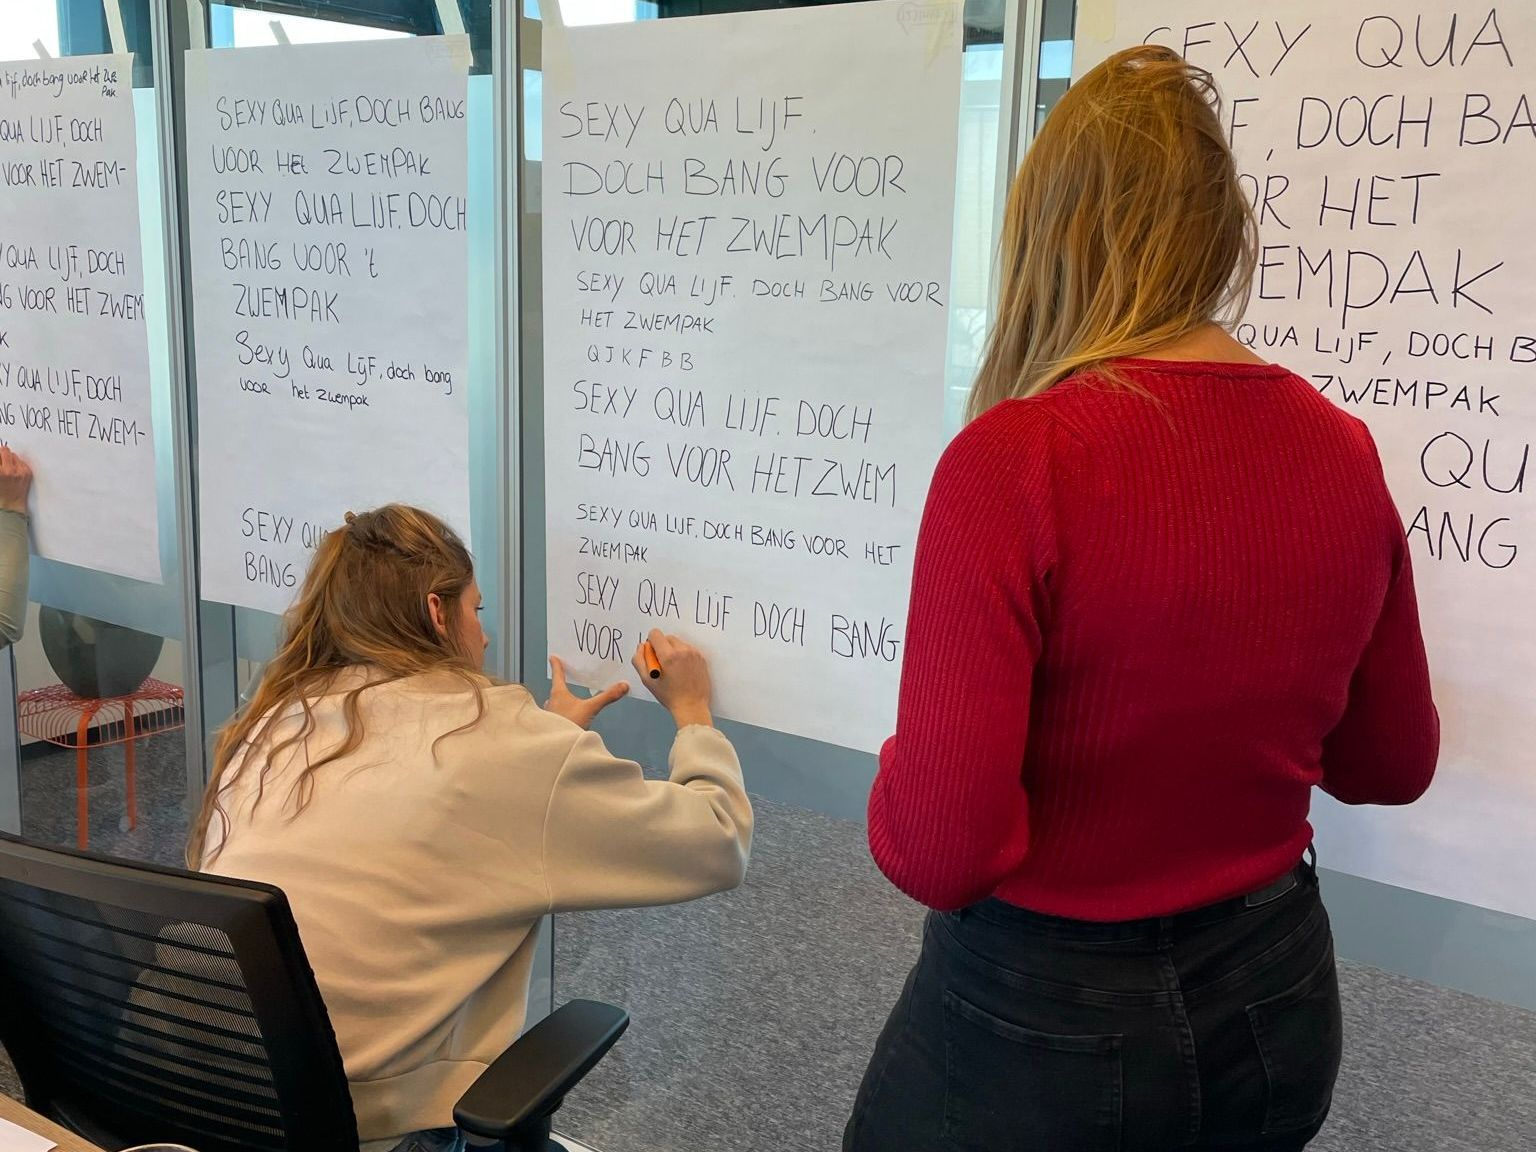 lijf, doch bang voor het zwe
Pak
QUA LIJF, DOCH
VOOR HET ZWEM-
QUA LIJF, DOCH
NG VOOR HET ZWEM
K
XY QUA LIJF, DOCH
NG VOOR HET ZWEM-
SEXY QUA LIJF, DOCH BANG
VOOR HET ZWEMPAK
SEXY QUA LIJF. DOCH
BANG VOOR 't
ZWEMPAK
Sexy Qua Lijf, doch bang
voor het zwempak
SEXY QU
BANG
SEXY QUA LIJF.
DOCH BANG VOOR
VOOR HET ZWEMPAK
SEXY QUA LIJF. DOCH BANG VOOR
HET ZWEMPAK
Q J K F B B
SEXY QUA LIJF. DOCH
BANG VOOR HET ZWEM
SEXY QUA LIJF. DOCH BANG VOOR HET
ZWEMPAK
SEXY QUA LIJF DOCH BANG
VOOR
SEXY QUA
F, DOCH BA
OR HET
EMPAK
QUA LIJF, DOCH B
ZWEMPAK
QU
ANG